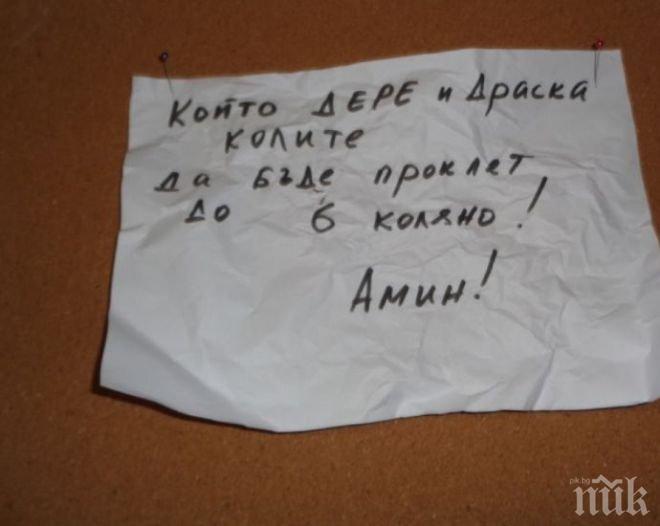 Който ДЕРЕ и Драска
колите
да бъде проклет
до 6 коляно!
Амин!
pik.bg
пик